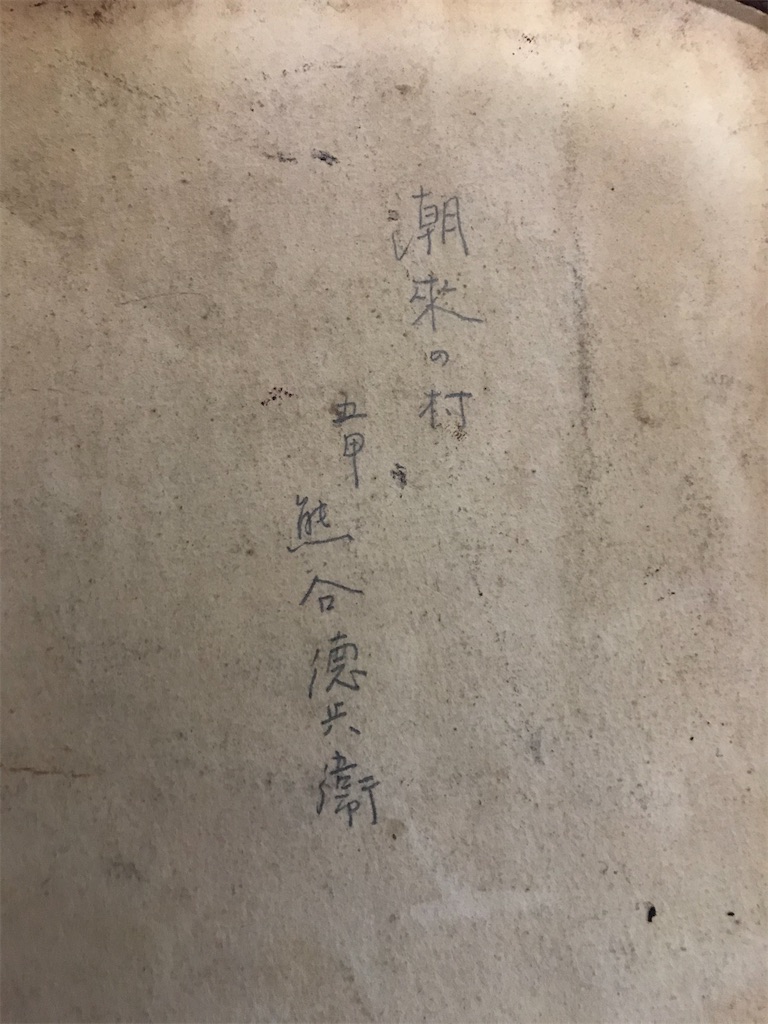 潮来の村
五甲
熊谷德兵衛